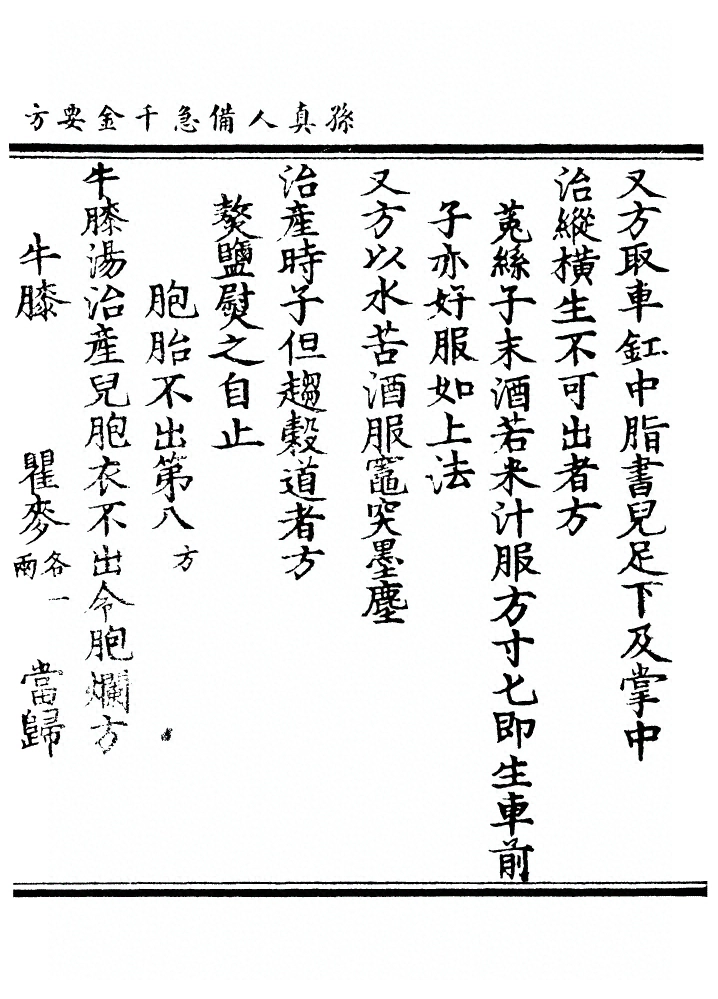 孫真人備急千金要方
又方取車釭中脂書兒足下及掌中
治縱橫生不可出者方
菟絲子末酒若米汁服方寸匕即生車前
子亦好服如上法
又方以水苦酒服竈突墨塵
治產時子但趨穀道者方
熬鹽熨之自止
胞胎不出第八 方
牛膝湯治產兒胞衣不出令胞爛方
牛膝 瞿麥各一兩 當歸